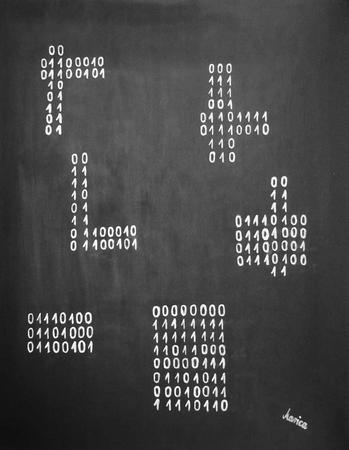 00
01100010
01100101
10
11
01
01
000
111
111
111
01101111
01110010
110
010
00
11
11
10
01
11
01100010
01100101
00
11
11
01110100
01101000
01100001
01110100
11
01110100
01101000
01100101
00000000
11111111
11111111
11011000
11110110